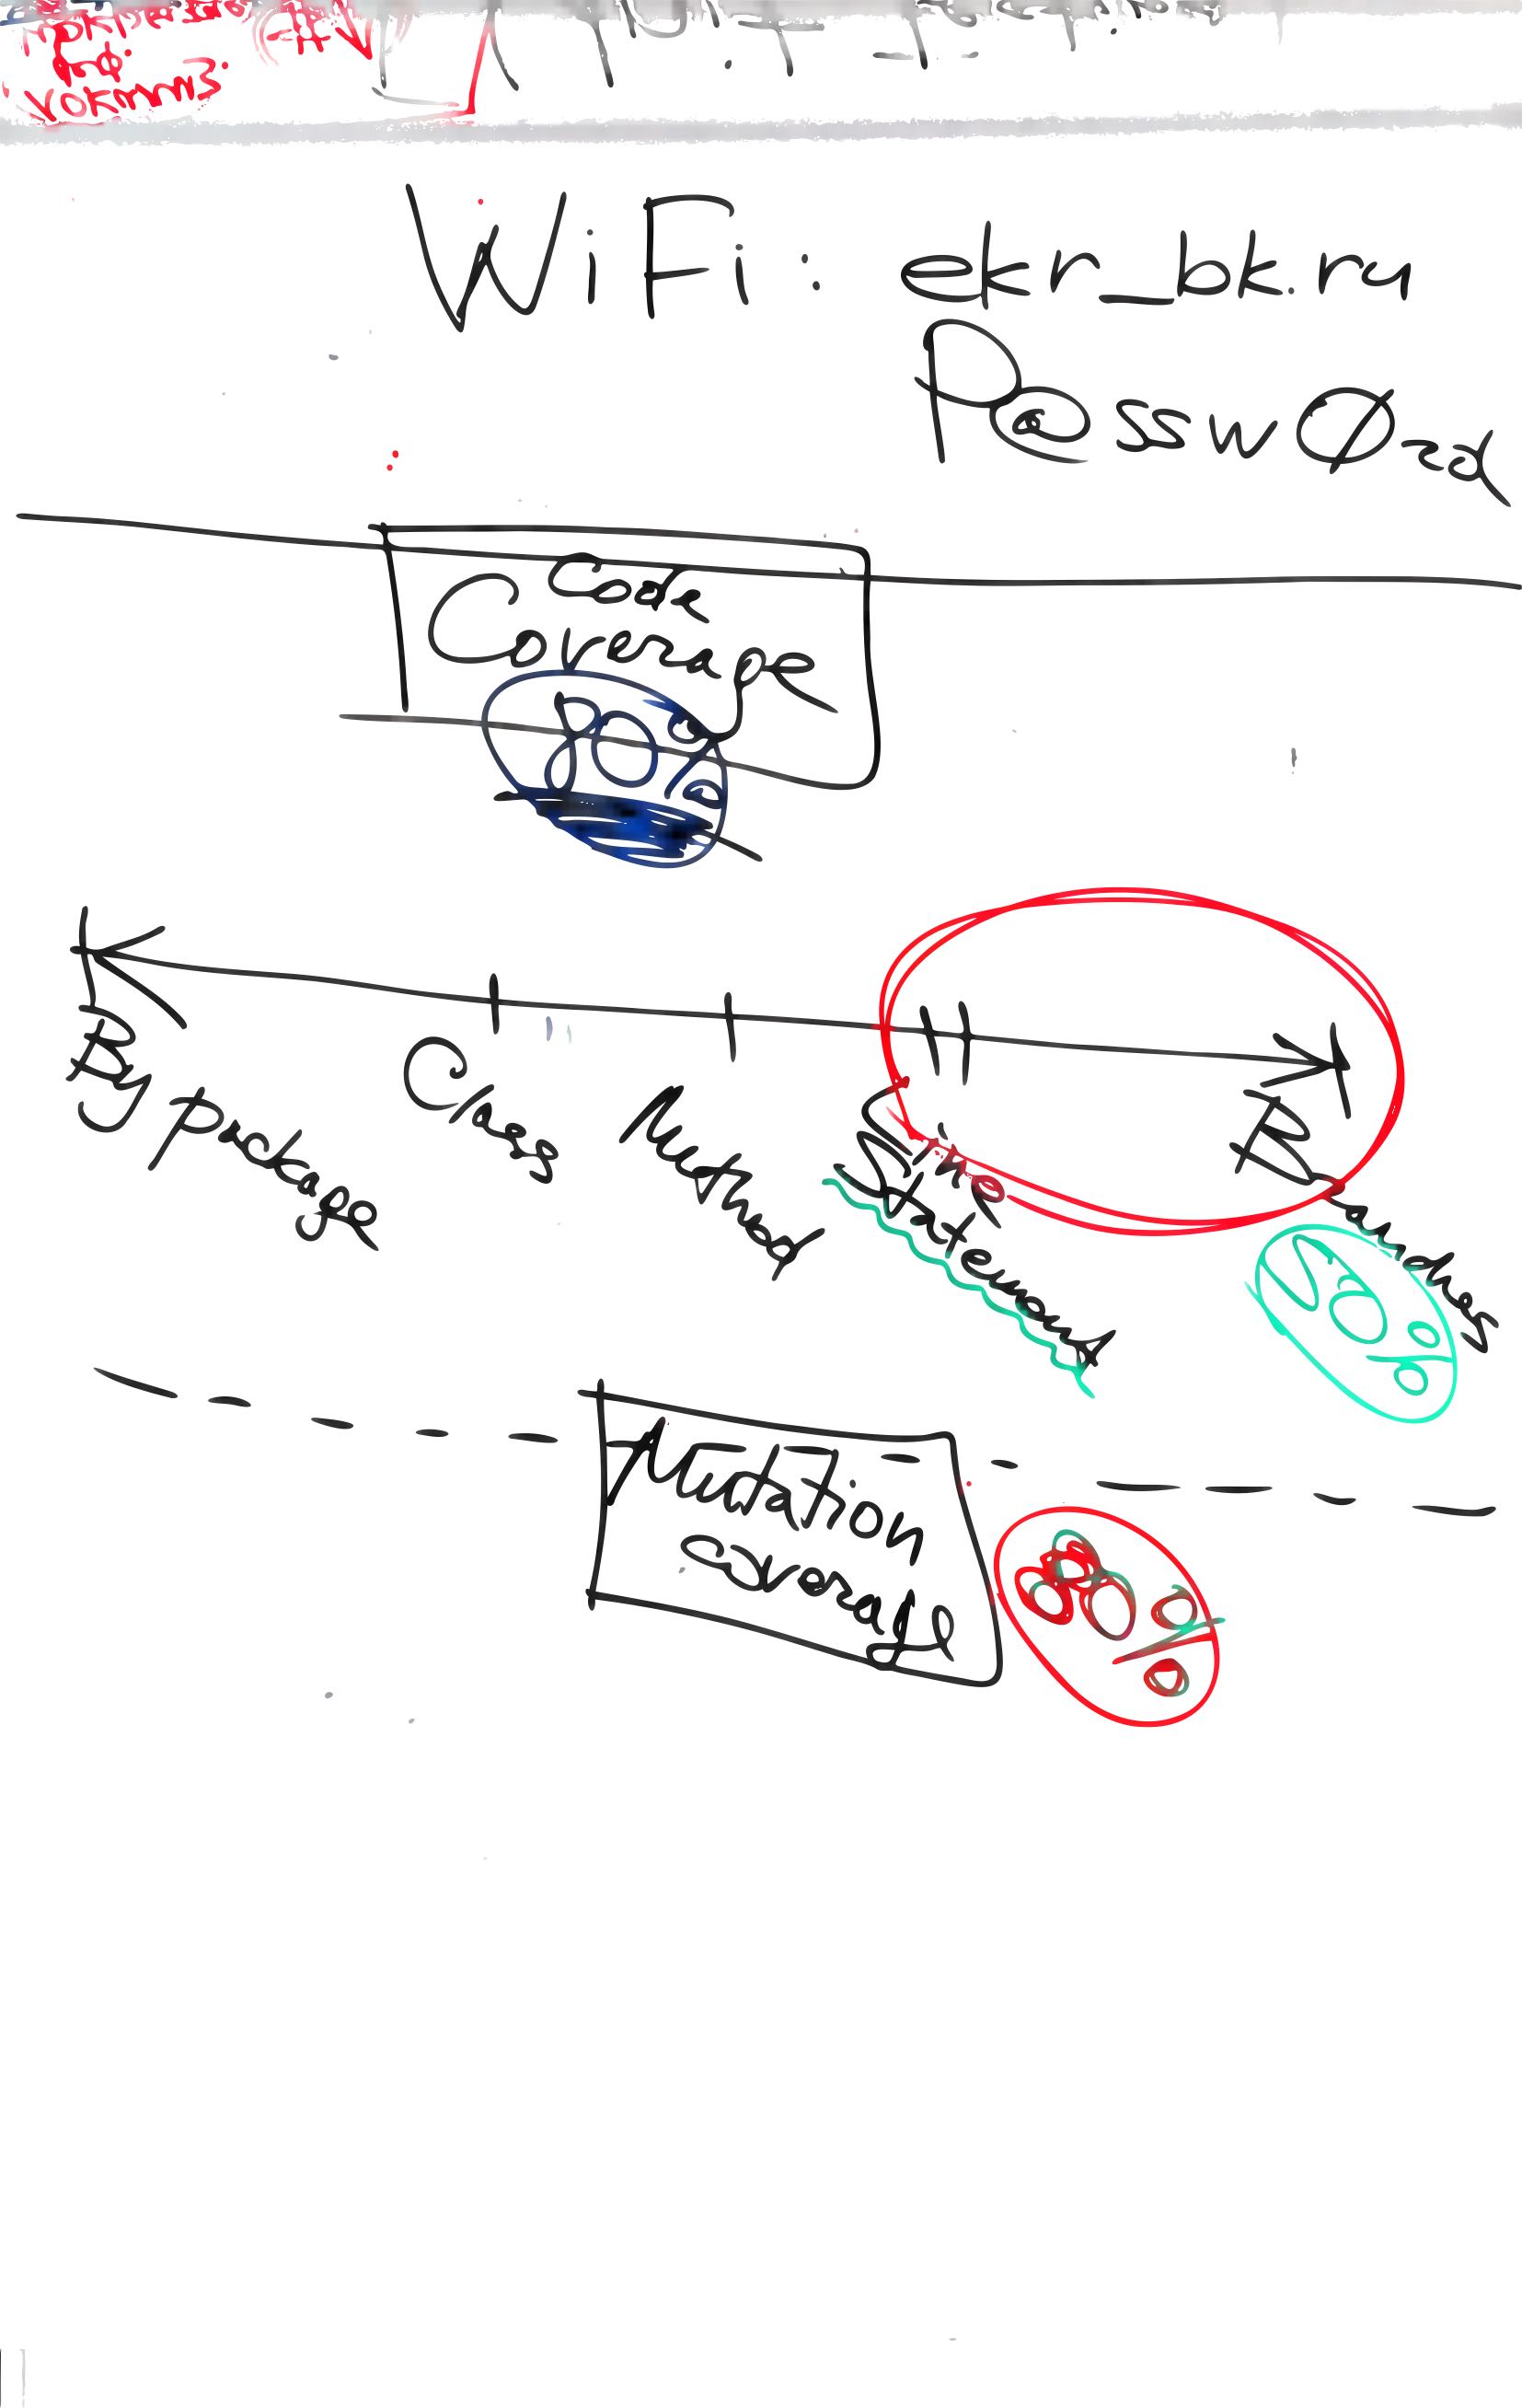 WiFi: ekr_bk.ru
P@sswØrd
Code
Coverage
80%
By package
Class
Method
Line
Statement
Branches
50%
Mutation
coverage
80%